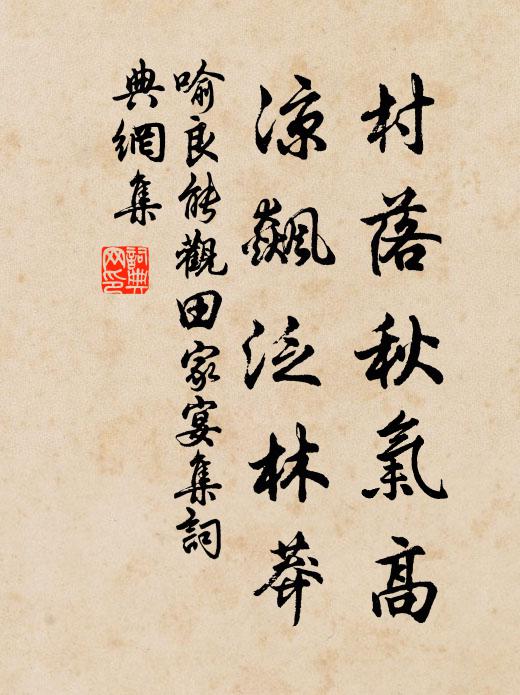 村落秋氣高
涼飆泛林莽
喻良能觀田家宴集詞
典網集
詞典
网印